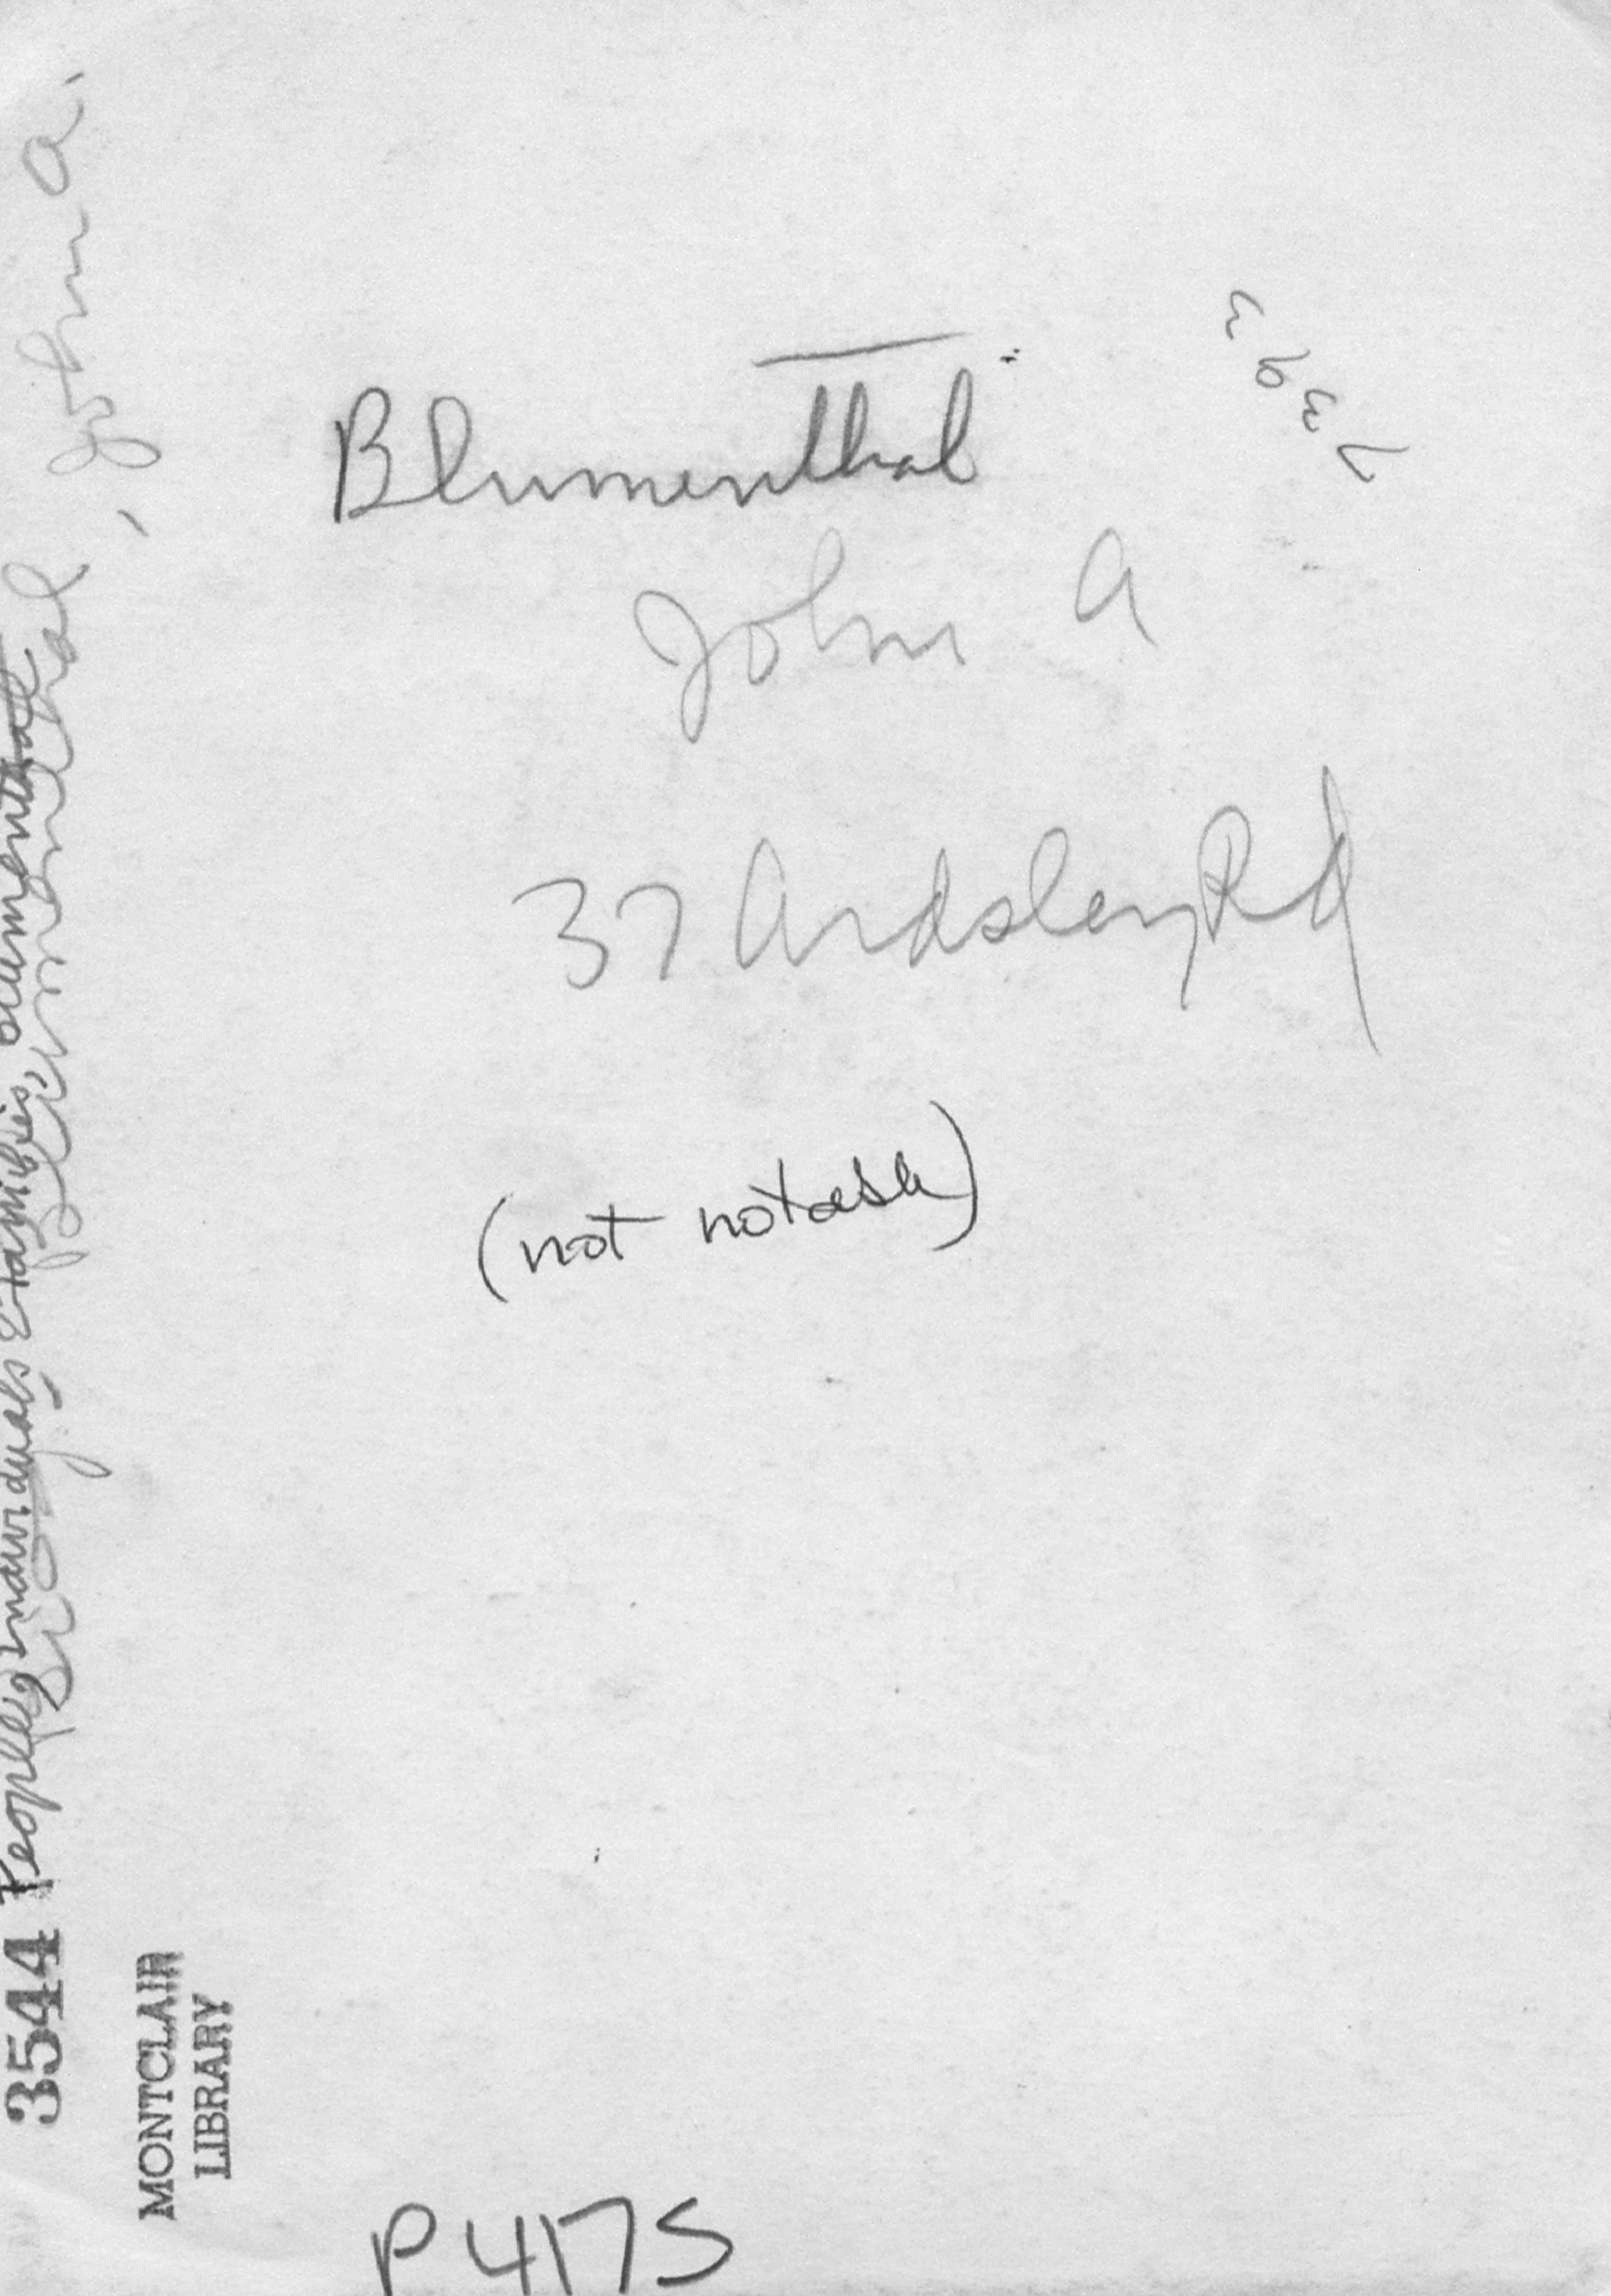 Blumenthal
John A
37 Ardsley Rd
(not notash)
3544 People, individuals & families, Blumenthal
Biog. - Blumenthal, John A.
MONTCLAIR
LIBRARY
P4175